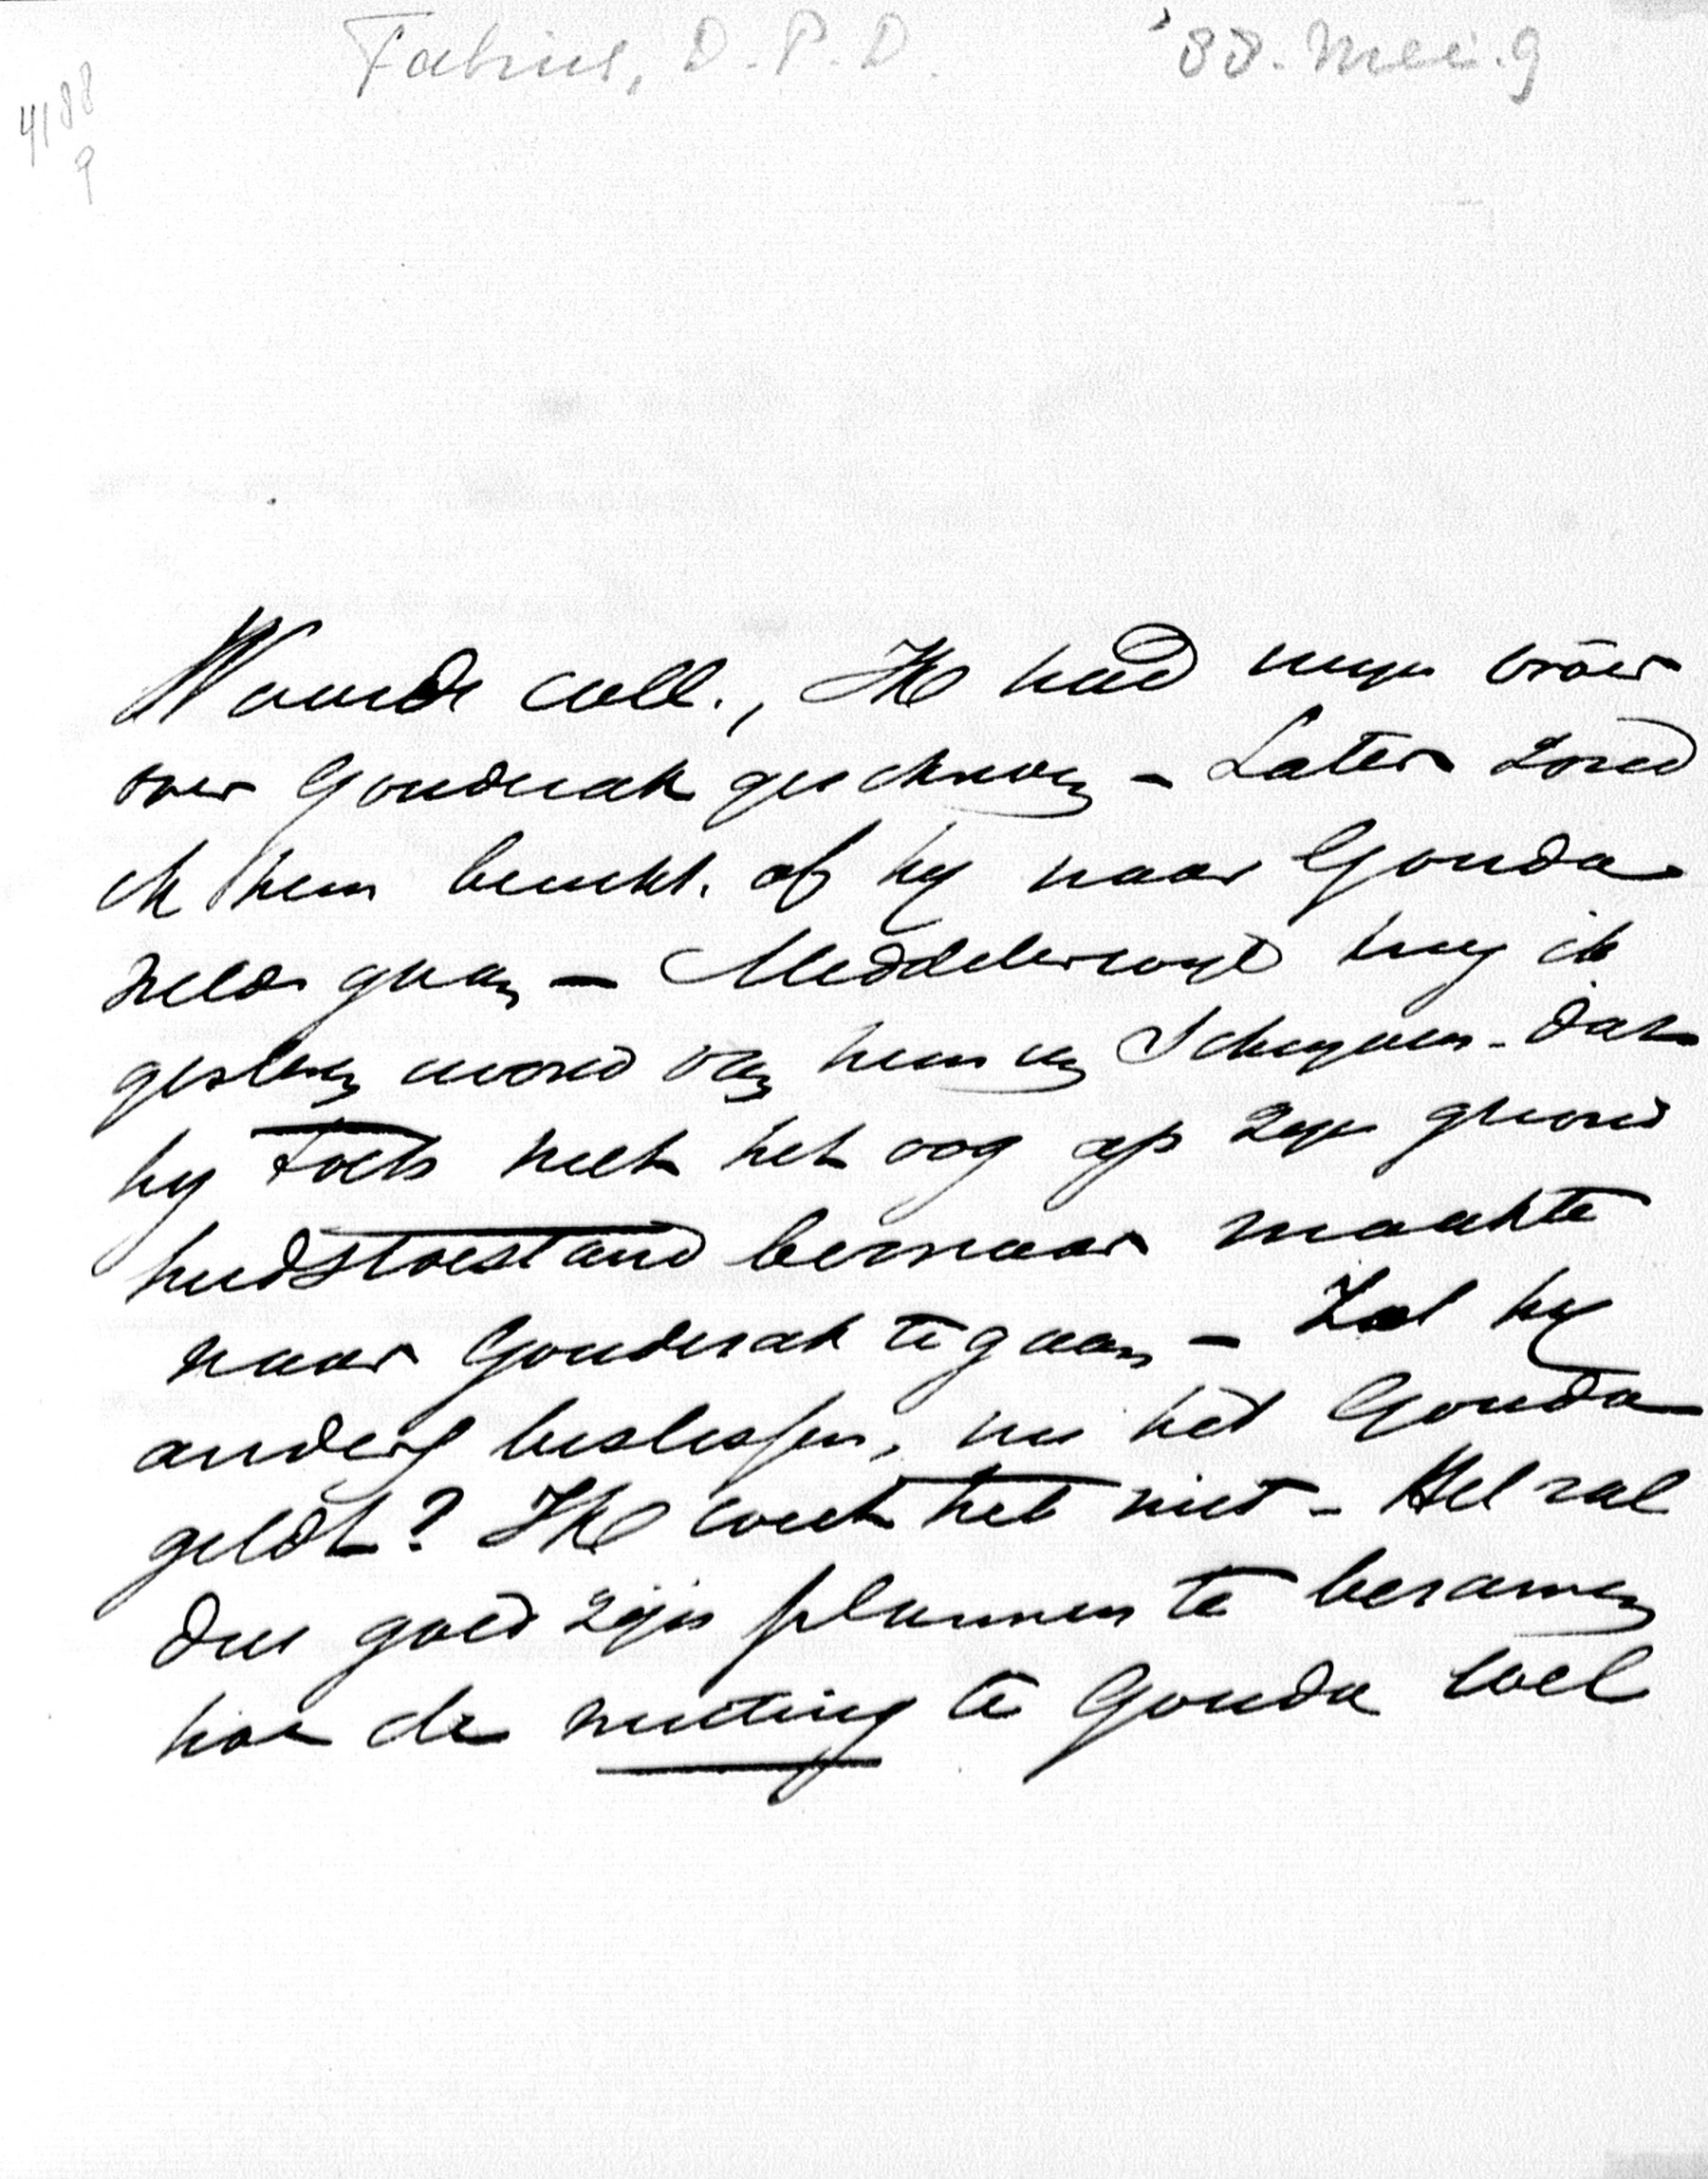 Fabius, D.P.D. '88. Mei. 9
4188
9
Waarde coll., Ik had mijn broer
over Gouderak geschreven – Later zond
ik hem bericht. of hij naar Gouda
wilde gaan – Middelerwijl krijg ik
gisteren avond van hem een schrijven – dat
hij toch met het oog op zijn gezond
heidstoestand bezwaar maakte
naar Gouderak te gaan – Zal hij
anders beslissen, nu het Gouda
geldt? Ik weet het niet – Het zal
dus goed zijn plannen te beramen
hoe de meeting te Gouda wel